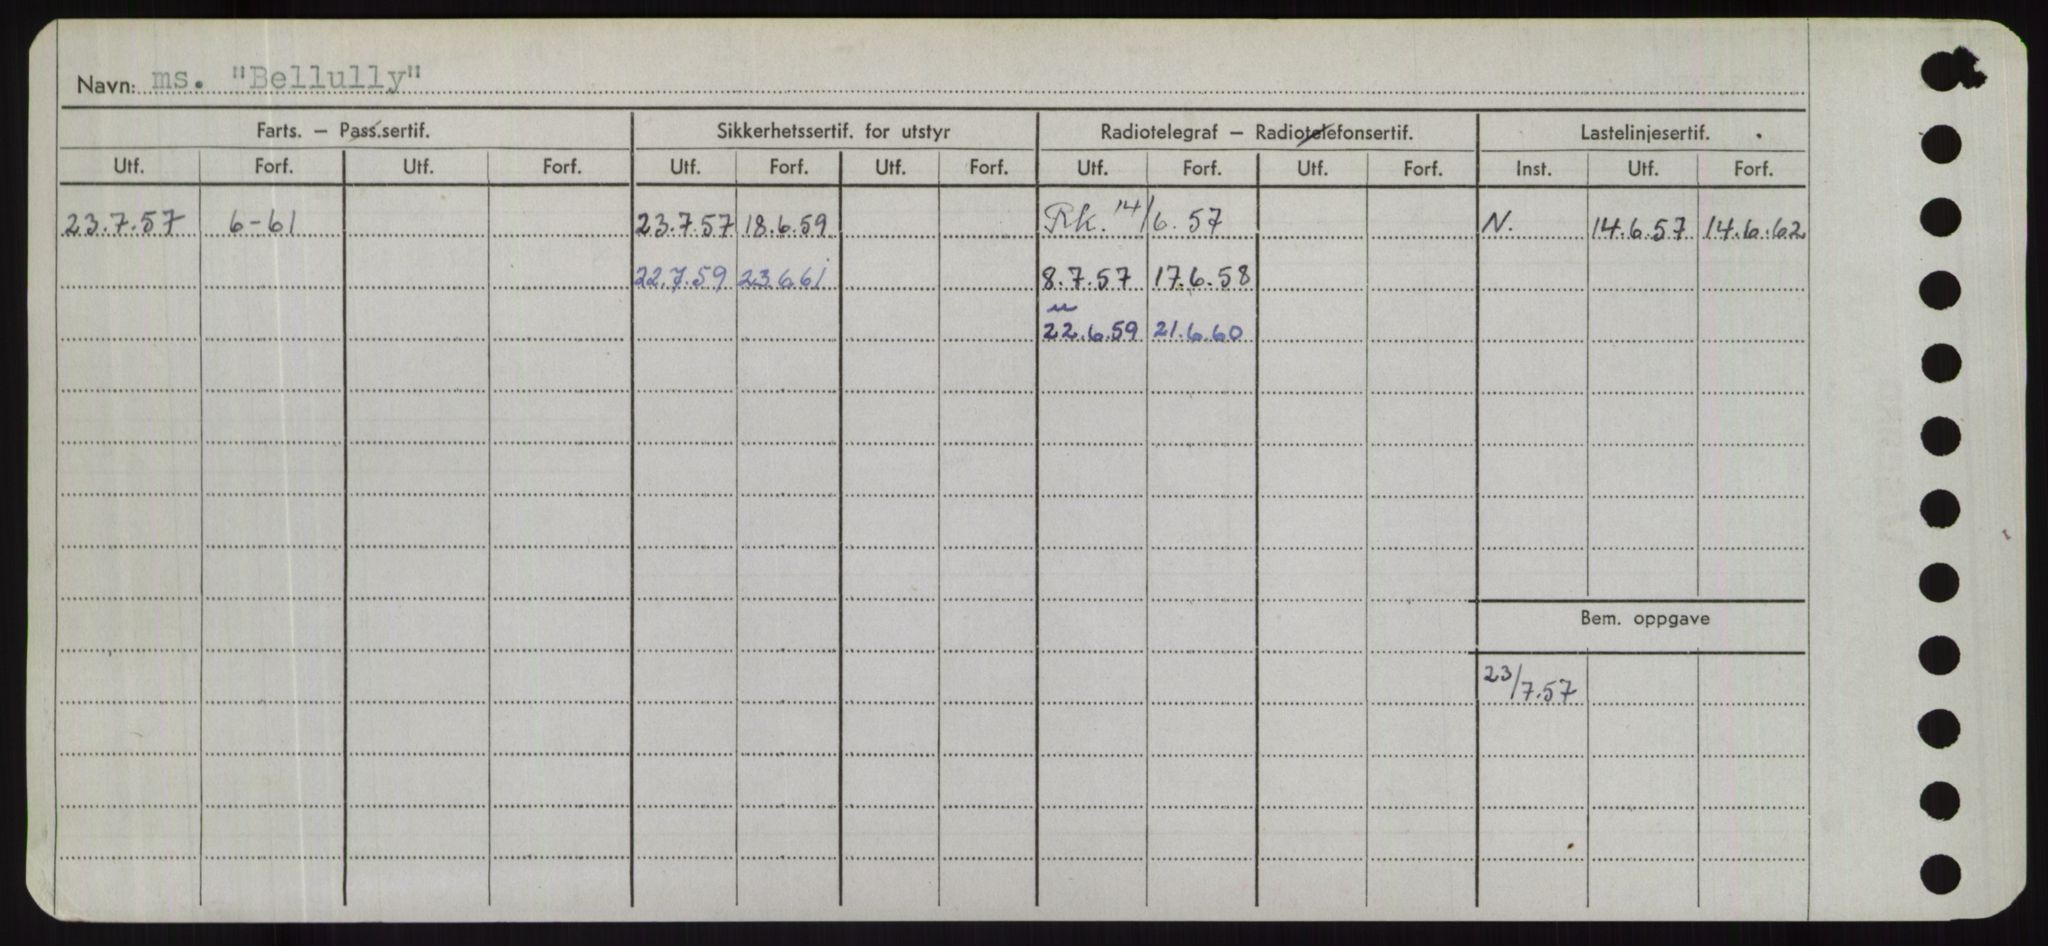 Navn: ms. "Bellully"
Farts. – Pass.sertif. Sikkerhetssertif. for utstyr Radiotelegraf – Radiotelefonsertif. Lastelinjesertif.
Utf. Forf. Utf. Forf. Utf. Forf. Utf. Forf. Utf. Forf. Utf. Forf. Inst. Utf. Forf.
23.7.57 6-61 23.7.57 18.6.59 Rk. 14/6.57 N. 14.6.57 14.6.62
22.7.59 23.6.61 8.7.57 17.6.58
22.6.59 21.6.60
Bem. oppgave
23/7.57